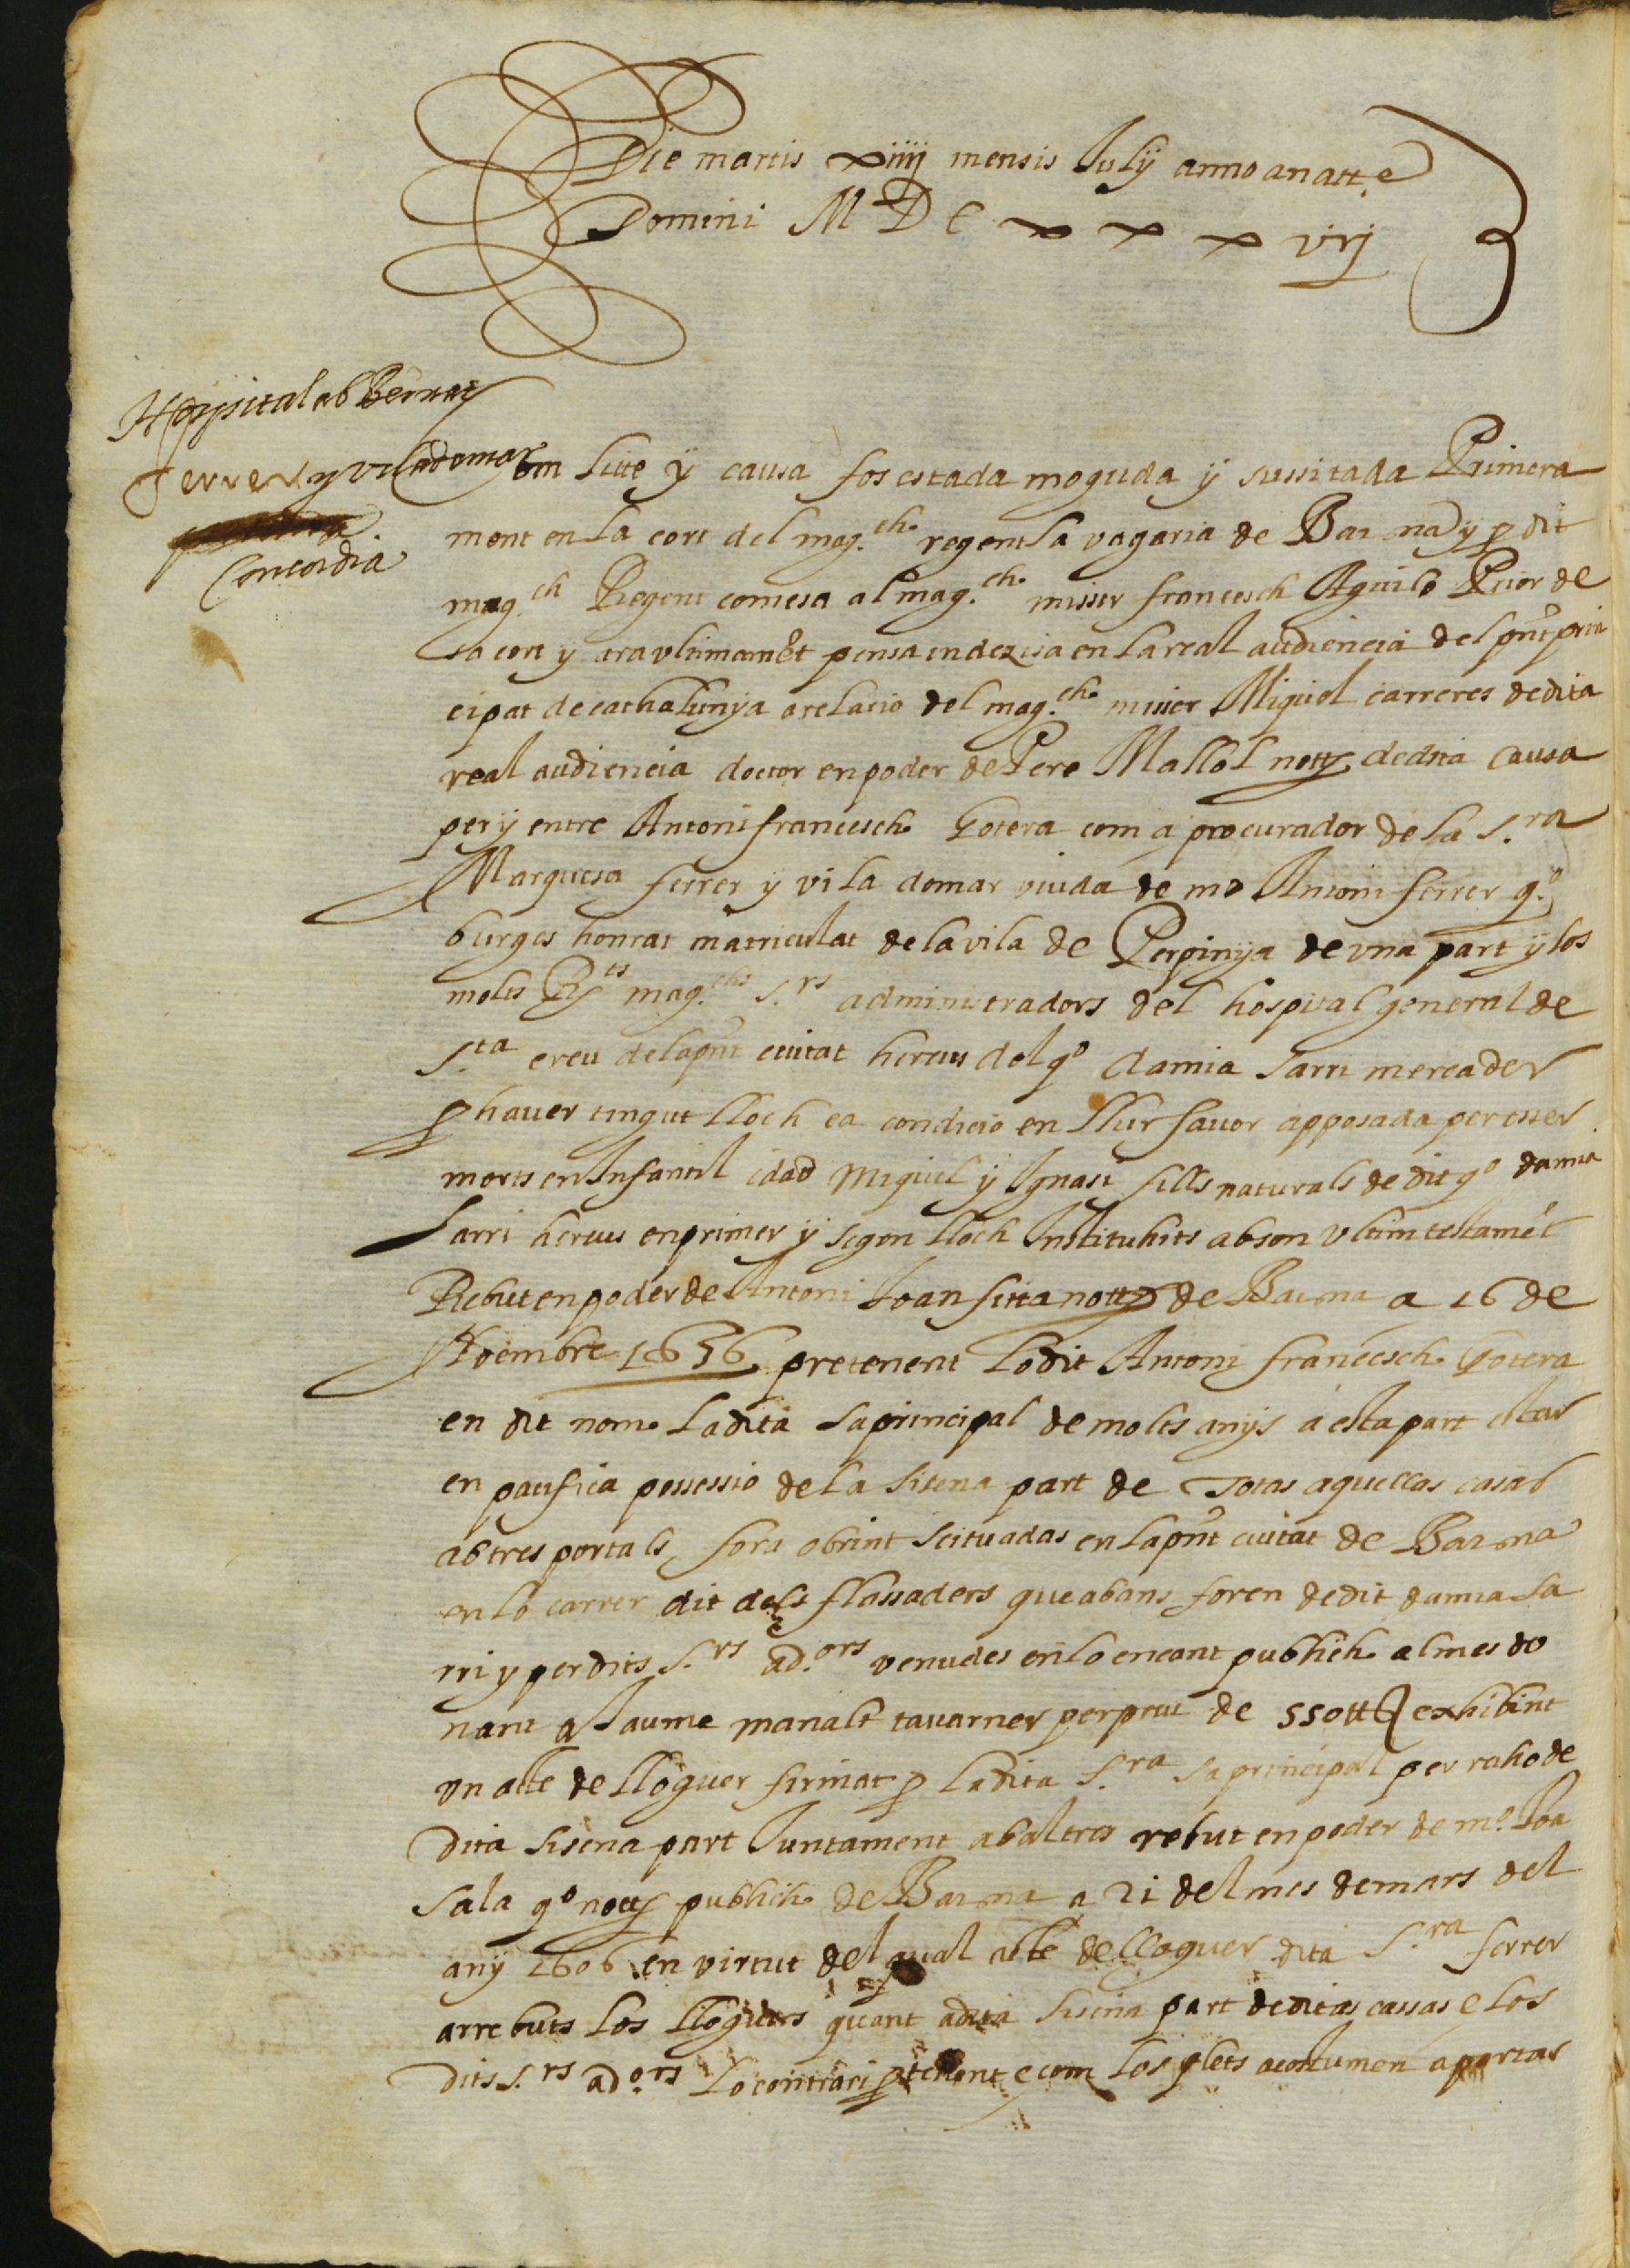 Die martis xiiij mensis July anno a natte
Domini M D C x x x vij
Hospital ab Bernat
Ferrer y Viladomar
Concordia
Com lite y causa fos estada moguda y sussitada Primera
ment en la cort del mag.ch regent la vagaria de Barna y p dit
mag.ch Regent comesa al mag.ch misser francesch Aguilo Prior de
sa cort y ara vltimamēt pensa indezisa en la real audiencia del pnt prin
cipat de cathalunya a relacio del mag.ch misser Miquel carreres de dita
real audiencia doctor en poder de Pere Mallol notȝ de dita causa
per y entre Antoni francesch Gotera com a procurador de la S.ra
Marquesa ferrer y vila domar viuda de mo Antoni ferrer q.o
burges honrat matriculat de la vila de Perpinya de vna part y los
molts Rts mag.chs S.rs administradors del hospital general de
S.ta creu de la pnt ciutat hereus del qo damia Sarri mercader
p hauer tingut lloch ea condicio en llur fauor apposada per esser
morts en Infantil idad Miquel y Ignasi fills naturals de dit qo damia
Sarri hereus en primer y segon lloch Instituhits ab son vltim testamēt
Rebut en poder de Antoni Joan fitta notȝ de Barna a 16 de
Noembre 1636 pretenent lo dit Antoni francesch Gotera
en dit nom la dita sa principal de molts anys a esta part estar
en pacifica possessio de la sisena part de Totas aquellas casas
ab tres portals fora obrint scituadas en la pnt ciutat de Barna
en lo carrer dit dels flassaders que abans foren de dit damia Sa
rri y per dits S.rs ad.ors venudes en lo encant publich al mes do
nant a Jaume manalt tauarner per preu de 550 ₶ exhibint
vn acte de lloguer firmat p la dita S.ra sa principal per raho de
dita sisena part Juntament ab altres rebut en poder de m.o Joā
Sala qo notȝ publich de Barna a 21 del mes de mars del
any 1606 en virtut del qual acte de lloguer dita S.ra ferrer
a rrebuts los lloguers quant a dita sisena part de ditas cassas e los
dits S.rs ad.ors lo contrari ptenent e com los plets acostumen a portar